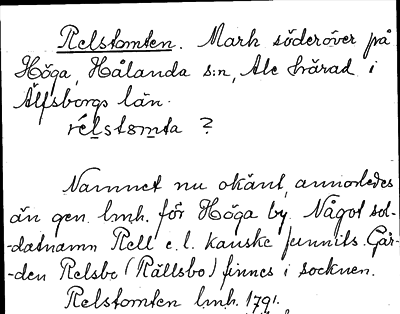 Relstomten. Mark söderöver på
Höga, Hålanda s:n, Ale härad i
Älfsborgs län.
rélstomta ?
Namnet nu okänt, annorledes
än gen. lmh. för Höga by. Något sol-
-datnamn Rell e. l. kanske funnits. Går-
-den Relsbo (Rällsbo) finnes i socknen.
Relstomten lmh. 1791.